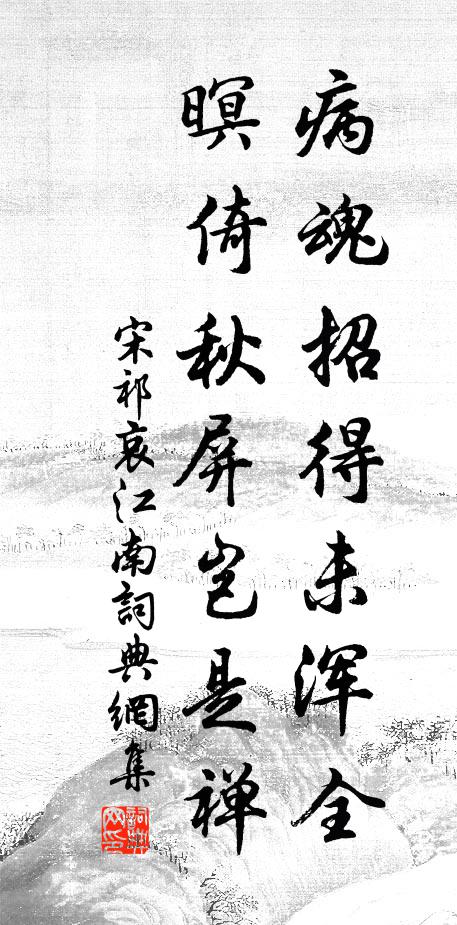 病魂招得未浑全
瞑倚秋屏岂是禅
宋祁哀江南詞典網集